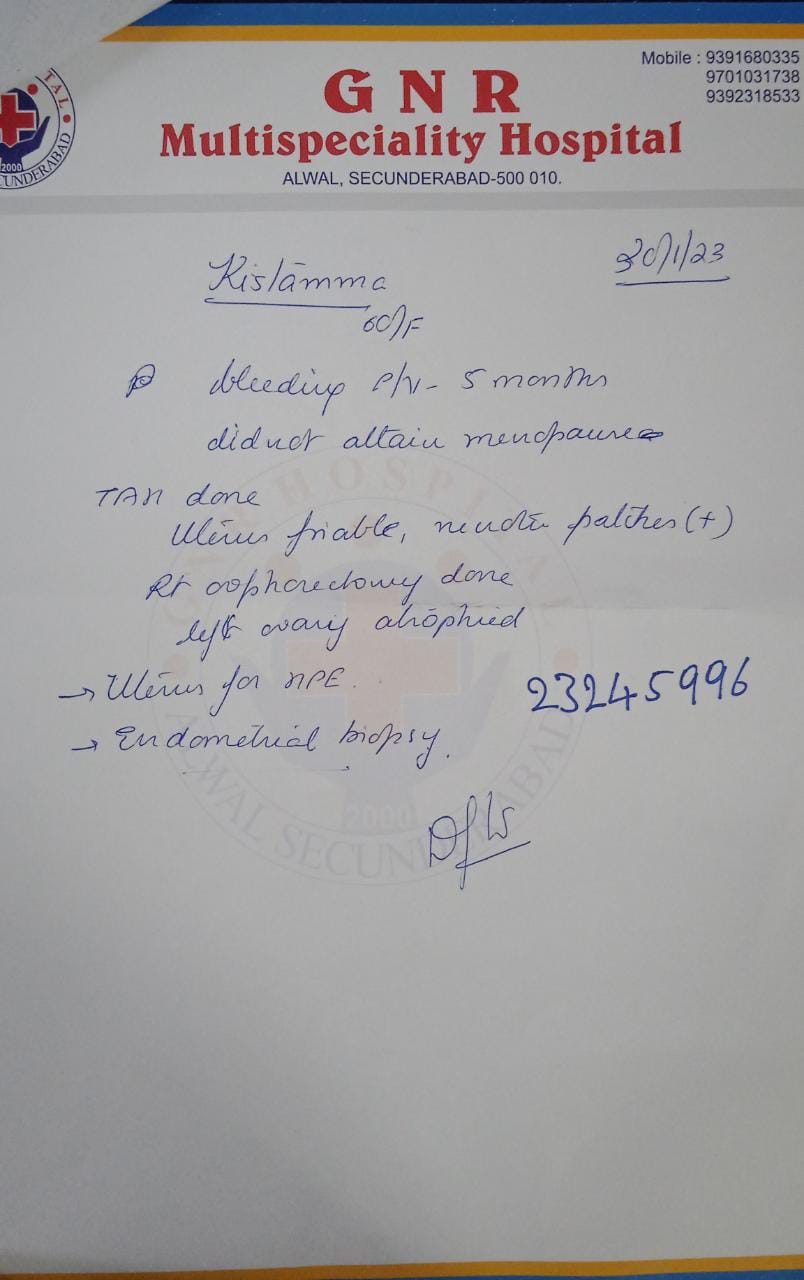 Mobile : 9391680335
9701031738
9392318533
G N R
Multispeciality Hospital
ALWAL, SECUNDERABAD-500 010.
TAL
2000
CUNDERABAD
30/1/23
Kistamma
60/F
bleeding P/V - 5 months
did not attain menopause
TAH done
Uterus friable, necrotic patches (+)
Rt oophorectomy done
left ovary atrophied
→ Uterus for HPE.
23245996
→ Endometrial biopsy.
GNR HOSPITAL
2000
ALWAL SECUNDERABAD